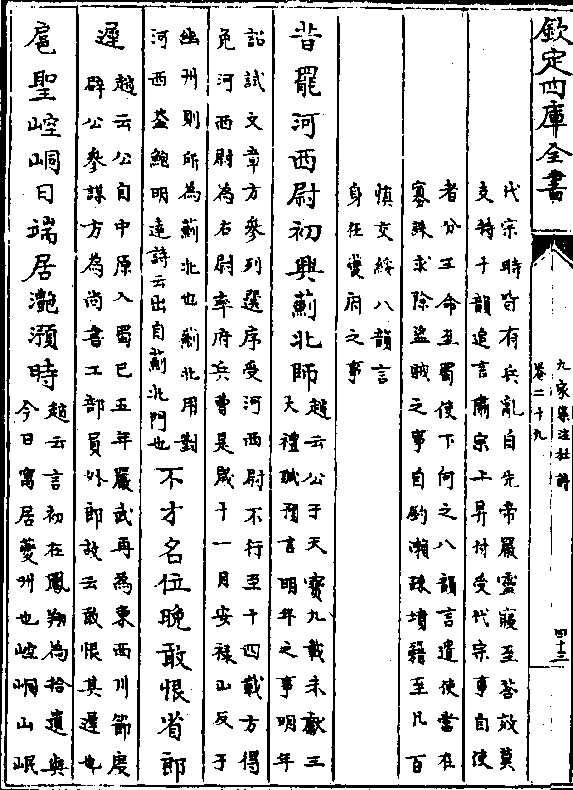 欽定四庫全書
九家集注杜詩
卷二十九
四十三
代宗時皆有兵亂自先帝嚴靈寢至答效莫
支持十韻追言肅宗上昇付受代宗事自使
者分王命至蜀使下何之八韻言遣使當在
寡誅求除盜賊之事自釣瀨疎墳籍至凡百
慎交綏八韻言
身在夔府之事
昔罷河西尉初興薊北師
趙云公于天寶九載末獻三
大禮賦預言明年之事明年
詔試文章方參列選序受河西尉不行至十四載方得
免河西尉為右尉率府兵曹是歲十一月安祿山反于
幽州則所為薊北也薊北用對
河西葢鮑明遠詩云出自薊北門也
不才名位晚敢恨省郎
遲
趙云公自中原入蜀已五年嚴武再為東西川節度
辟公參謀方為尚書工部員外郎故云敢恨其遲也
扈聖崆峒日端居灔澦時
趙云言初在鳳翔為拾遺與
今日寓居夔州也崆峒山岷